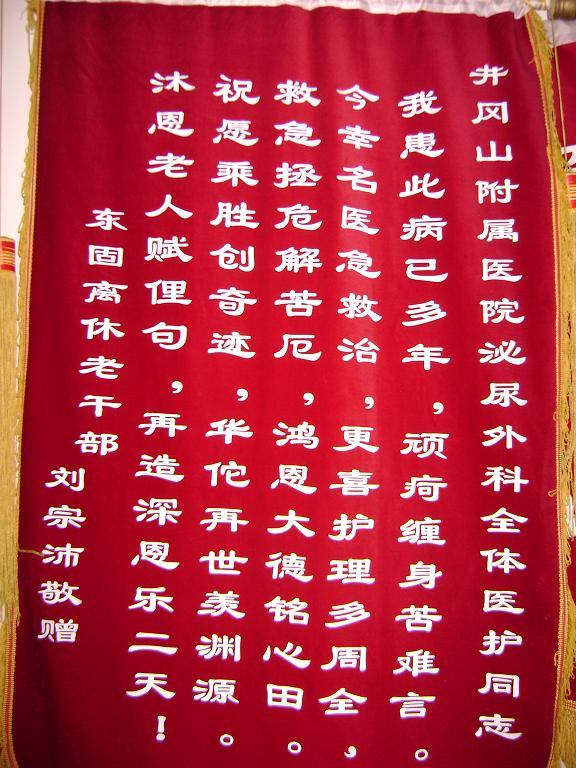 井冈山附属医院泌尿外科全体医护同志
我患此病已多年，顽疴缠身苦难言。
今幸名医急救治，更喜护理多周全，
救急拯危解苦厄，鸿恩大德铭心田。
祝愿乘胜创奇迹，华佗再世羡渊源。
沐恩老人赋俚句，再造深恩乐二天！
东固离休老干部
刘宗沛敬赠